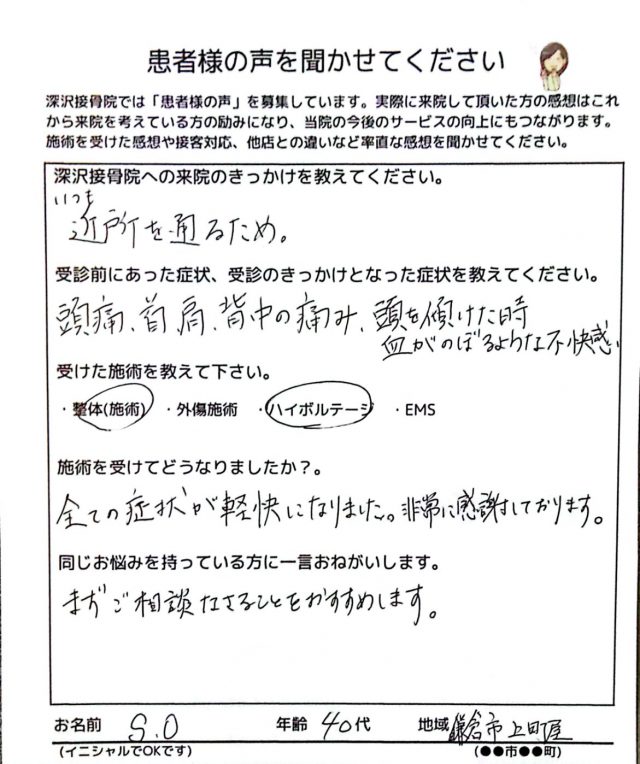 患者様の声を聞かせてください
深沢接骨院では「患者様の声」を募集しています。実際に来院して頂いた方の感想はこれ
から来院を考えている方の励みになり、当院の今後のサービスの向上にもつながります。
施術を受けた感想や接客対応、他店との違いなど率直な感想を聞かせてください。
深沢接骨院への来院のきっかけを教えてください。
いつも
近所を通るため。
受診前にあった症状、受診のきっかけとなった症状を教えてください。
頭痛、首、肩、背中の痛み、頭を傾けた時
血がのぼるような不快感
受けた施術を教えて下さい。
・整体(施術) ・外傷施術 ・ハイボルテージ ・EMS
施術を受けてどうなりましたか？。
全ての症状が軽快になりました。非常に感謝しております。
同じお悩みを持っている方に一言おねがいします。
まずご相談なさることをおすすめします。
お名前 S.O 年齢 40代 地域 鎌倉市上町屋
(イニシャルでOKです) (●●市●●町)